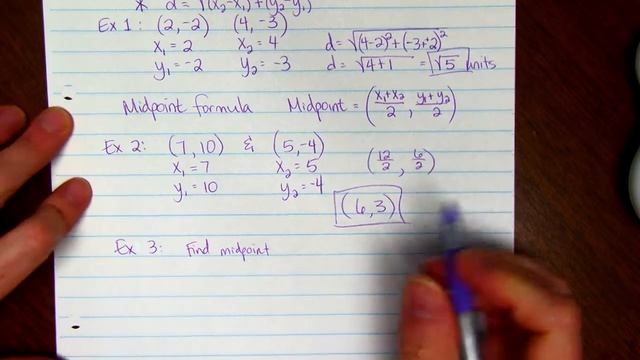 * d = √(x₂-x₁)²+(y₂-y₁)²
Ex 1: (2,-2) (4,-3)
x₁ = 2 x₂ = 4 d = √(4-2)²+(-3+2)²
y₁ = -2 y₂ = -3 d = √4+1 = √5 units
Midpoint formula Midpoint = (x₁+x₂/2, y₁+y₂/2)
Ex 2: (7,10) & (5,-4)
x₁ = 7 x₂ = 5 (12/2, 6/2)
y₁ = 10 y₂ = -4
(6,3)
Ex 3: Find midpoint